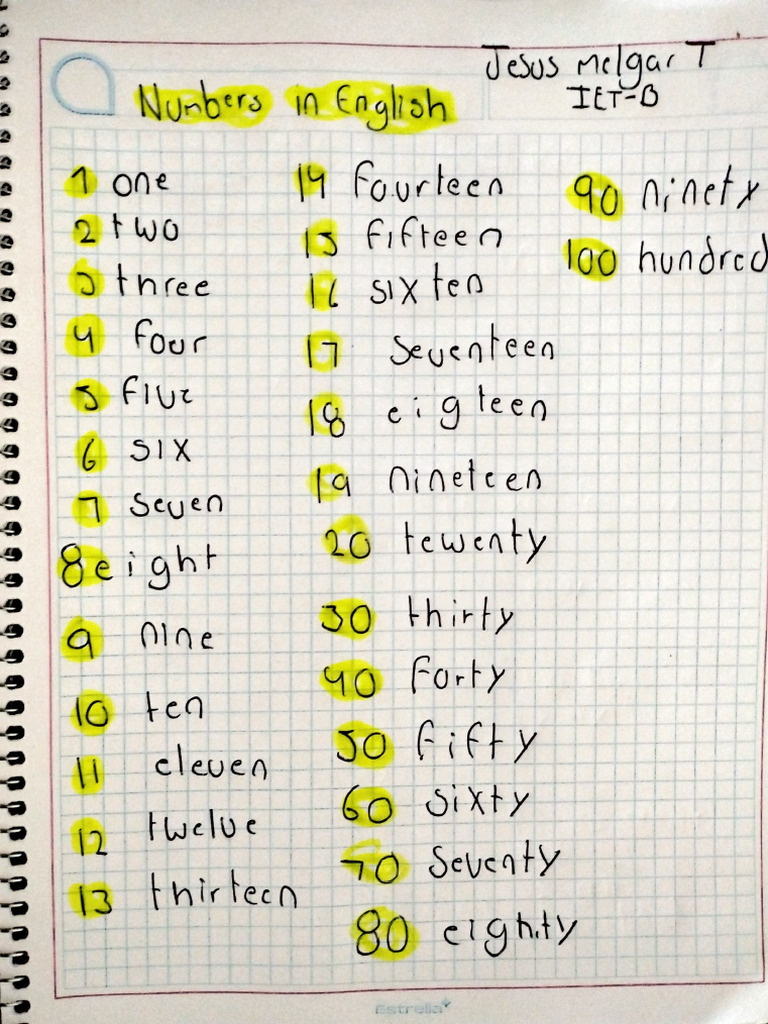 Jesus Melgar T
IET-B
Numbers in English
1 one
2 two
3 three
4 four
5 five
6 six
7 seven
8 eight
9 nine
10 ten
11 eleven
12 twelve
13 thirteen
14 fourteen
15 fifteen
16 sixten
17 seventeen
18 eigteen
19 nineteen
20 tewenty
30 thirty
40 forty
50 fifty
60 sixty
70 seventy
80 eighty
90 ninety
100 hundred
Estrella